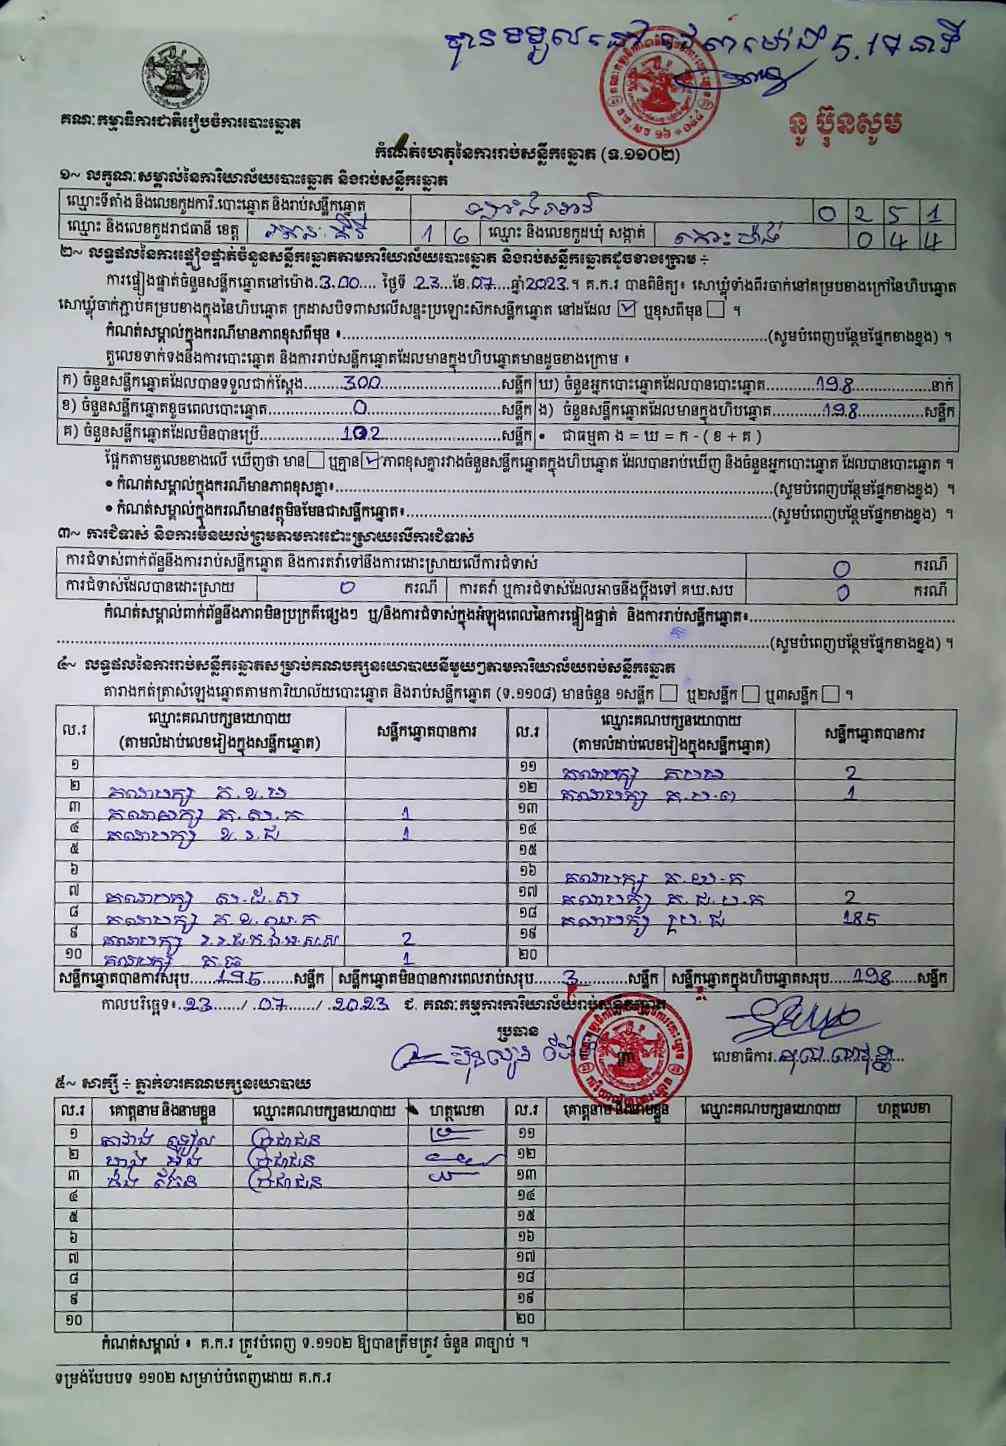 បានទទួលនៅ ម៉ោង 5.17 នាទី
នូ ប៊ុនសូម
គណៈកម្មាធិការជាតិរៀបចំការបោះឆ្នោត
កំណត់ហេតុនៃការរាប់សន្លឹកឆ្នោត (ទ.១១០២)
១~ លក្ខណៈសម្គាល់នៃការិយាល័យបោះឆ្នោត និងរាប់សន្លឹកឆ្នោត
ឈ្មោះទីតាំង និងលេខកូដការិ.បោះឆ្នោត និងរាប់សន្លឹកឆ្នោត 0 2 5 1
ឈ្មោះ និងលេខកូដរាជធានី ខេត្ត រតនៈគីរី 1 6 ឈ្មោះ និងលេខកូដឃុំ សង្កាត់ កោះប៉ង់ 0 4 4
២~ លទ្ធផលនៃការផ្ទៀងផ្ទាត់ចំនួនសន្លឹកឆ្នោតតាមការិយាល័យបោះឆ្នោត និងរាប់សន្លឹកឆ្នោតដូចខាងក្រោម ÷
ការផ្ទៀងផ្ទាត់ចំនួនសន្លឹកឆ្នោតនៅម៉ោង.3.00.... ថ្ងៃទី 23...ខែ.07....ឆ្នាំ2023.។ គ.ក.រ បានពិនិត្យ៖ សោឃ្លុំទាំងពីរចាក់នៅគម្របខាងក្រៅនៃហិបឆ្នោត
សោឃ្លុំចាក់ភ្ជាប់គម្របខាងក្នុងនៃហិបឆ្នោត ក្រដាសបិទពាសលើសន្ទះប្រឡោះស៊កសន្លឹកឆ្នោត នៅដដែល ☑ ឬខុសពីមុន ☐ ។
កំណត់សម្គាល់ក្នុងករណីមានភាពខុសពីមុន ៖..........(សូមបំពេញបន្ថែមផ្នែកខាងខ្នង) ។
តួលេខទាក់ទងនឹងការបោះឆ្នោត និងការរាប់សន្លឹកឆ្នោតដែលមានក្នុងហិបឆ្នោតមានដូចខាងក្រោម ៖
ក) ចំនួនសន្លឹកឆ្នោតដែលបានទទួលជាក់ស្តែង........300........សន្លឹក ឃ) ចំនួនអ្នកបោះឆ្នោតដែលបានបោះឆ្នោត........198........នាក់
ខ) ចំនួនសន្លឹកឆ្នោតខូចពេលបោះឆ្នោត........0........សន្លឹក ង) ចំនួនសន្លឹកឆ្នោតដែលមានក្នុងហិបឆ្នោត........198........សន្លឹក
គ) ចំនួនសន្លឹកឆ្នោតដែលមិនបានប្រើ........102........សន្លឹក • ជាធម្មតា ង = ឃ = ក - ( ខ + គ )
ផ្អែកតាមតួលេខខាងលើ ឃើញថា មាន☐ ឬគ្មាន☑ភាពខុសគ្នារវាងចំនួនសន្លឹកឆ្នោតក្នុងហិបឆ្នោត ដែលបានរាប់ឃើញ និងចំនួនអ្នកបោះឆ្នោត ដែលបានបោះឆ្នោត ។
• កំណត់សម្គាល់ក្នុងករណីមានភាពខុសគ្នា៖..........(សូមបំពេញបន្ថែមផ្នែកខាងខ្នង) ។
• កំណត់សម្គាល់ក្នុងករណីមានវត្ថុមិនមែនជាសន្លឹកឆ្នោត៖..........(សូមបំពេញបន្ថែមផ្នែកខាងខ្នង) ។
៣~ ការជំទាស់ និងការមិនយល់ព្រមតាមការដោះស្រាយលើការជំទាស់
ការជំទាស់ពាក់ព័ន្ធនឹងការរាប់សន្លឹកឆ្នោត និងការតវ៉ាទៅនឹងការដោះស្រាយលើការជំទាស់ 0 ករណី
ការជំទាស់ដែលបានដោះស្រាយ 0 ករណី ការតវ៉ា ឬការជំទាស់ដែលអាចនឹងប្តឹងទៅ គឃ.សប 0 ករណី
កំណត់សម្គាល់ពាក់ព័ន្ធនឹងភាពមិនប្រក្រតីផ្សេងៗ ឬ/និងការជំទាស់ក្នុងអំឡុងពេលនៃការផ្ទៀងផ្ទាត់ និងការរាប់សន្លឹកឆ្នោត៖..........
..........(សូមបំពេញបន្ថែមផ្នែកខាងខ្នង) ។
៤~ លទ្ធផលនៃការរាប់សន្លឹកឆ្នោតសម្រាប់គណបក្សនយោបាយនីមួយៗតាមការិយាល័យរាប់សន្លឹកឆ្នោត
តារាងកត់ត្រាសំឡេងឆ្នោតតាមការិយាល័យបោះឆ្នោត និងរាប់សន្លឹកឆ្នោត (ទ.១១០៨) មានចំនួន ១សន្លឹក ☐ ឬ២សន្លឹក ☐ ឬ៣សន្លឹក ☐ ។
ល.រ ឈ្មោះគណបក្សនយោបាយ (តាមលំដាប់លេខរៀងក្នុងសន្លឹកឆ្នោត) សន្លឹកឆ្នោតបានការ ល.រ ឈ្មោះគណបក្សនយោបាយ (តាមលំដាប់លេខរៀងក្នុងសន្លឹកឆ្នោត) សន្លឹកឆ្នោតបានការ
១ ១១ គណបក្ស 2
២ គណបក្ស ក.ខ.ឃ ១២ គណបក្ស 1
៣ គណបក្ស ក.ស.ក 1 ១៣
៤ គណបក្ស ខ.រ.ជ 1 ១៤
៥ ១៥
៦ ១៦ គណបក្ស ក.យ.ក
៧ គណបក្ស ស.ជ.ស ១៧ គណបក្ស ក.ជ.ប.ក 2
៨ គណបក្ស ១៨ គណបក្ស ប្រ.ជ 185
៩ គណបក្ស 2 ១៩
១០ គណបក្ស 1 ២០
សន្លឹកឆ្នោតបានការសរុប...195......សន្លឹក សន្លឹកឆ្នោតមិនបានការពេលរាប់សរុប....3......សន្លឹក សន្លឹកឆ្នោតក្នុងហិបឆ្នោតសរុប...198...សន្លឹក
កាលបរិច្ឆេទ៖..23....../..07....../..2023 ជ. គណៈកម្មការការិយាល័យរាប់សន្លឹកឆ្នោត
ប្រធាន
លេខាធិការ
៥~ សាក្សី ÷ ភ្នាក់ងារគណបក្សនយោបាយ
ល.រ គោត្តនាម និងនាមខ្លួន ឈ្មោះគណបក្សនយោបាយ ហត្ថលេខា ល.រ គោត្តនាម និងនាមខ្លួន ឈ្មោះគណបក្សនយោបាយ ហត្ថលេខា
១ ប្រជាជន ១១
២ ប្រជាជន ១២
៣ ប្រជាជន ១៣
៤ ១៤
៥ ១៥
៦ ១៦
៧ ១៧
៨ ១៨
៩ ១៩
១០ ២០
កំណត់សម្គាល់ ៖ គ.ក.រ ត្រូវបំពេញ ទ.១១០២ ឱ្យបានត្រឹមត្រូវ ចំនួន ៣ច្បាប់ ។
ទម្រង់បែបបទ ១១០២ សម្រាប់បំពេញដោយ គ.ក.រ